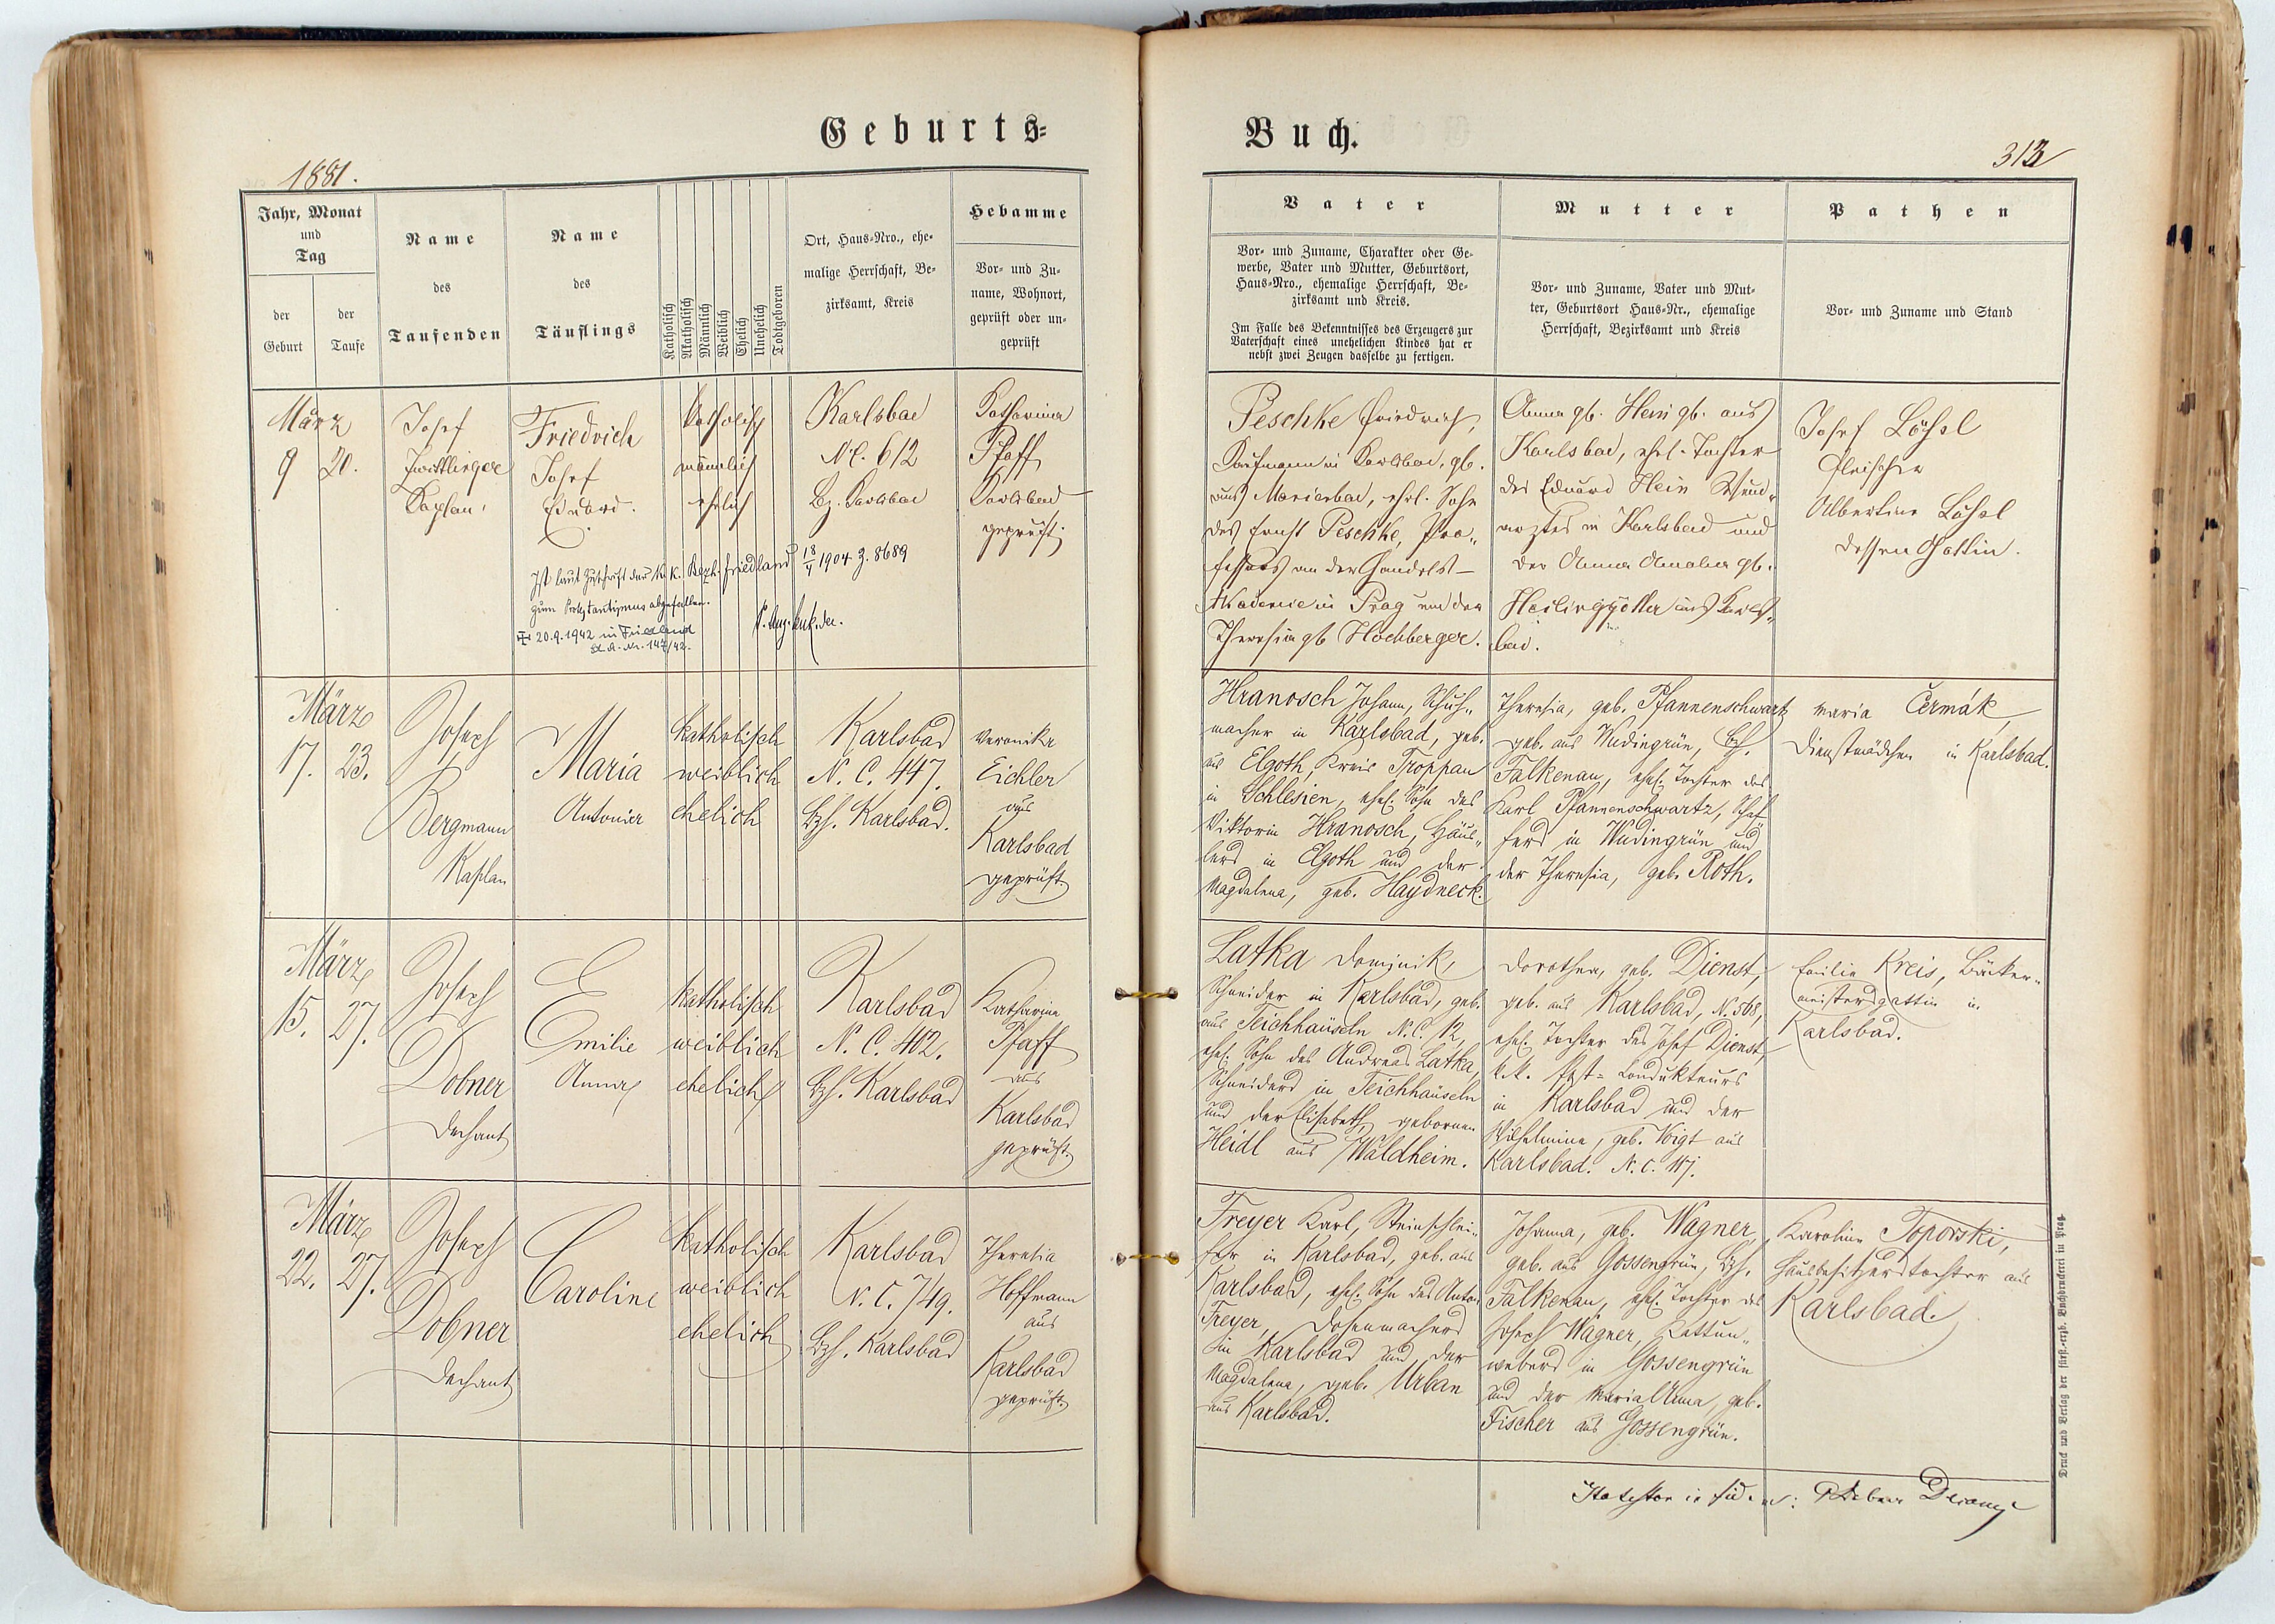 Geburts-
Buch.
1881.
313
Jahr, Monat
und
Tag
der
Geburt
der
Taufe
Name
des
Taufenden
Name
des
Täuflings
Katholisch
Akatholisch
Männlich
Weiblich
Ehelich
Unehelich
Todtgeboren
Ort, Haus-Nro., ehe-
malige Herrschaft, Be-
zirksamt, Kreis
Hebamme
Vor- und Zu-
name, Wohnort,
geprüft oder un-
geprüft
Vater
Vor- und Zuname, Charakter oder Ge-
werbe, Vater und Mutter, Geburtsort,
Haus-Nro., ehemalige Herrschaft, Be-
zirksamt und Kreis.
Im Falle des Bekenntnisses des Erzeugers zur
Vaterschaft eines unehelichen Kindes hat er
nebst zwei Zeugen dasselbe zu fertigen.
Mutter
Vor- und Zuname, Vater und Mut-
ter, Geburtsort Haus-Nr., ehemalige
Herrschaft, Bezirksamt und Kreis
Pathen
Vor- und Zuname und Stand
März
9 20.
Josef
Kaplan
Friedrich
Josef
Eduard.
katholisch
männlich
ehelich
Karlsbad
N.C. 612
Bz. Karlsbad
Katharina
Pfaff
Karlsbad
geprüft.
Ist laut Zuschrift der k. k. Bezh. Friedland 18/4 1904 Z. 8689
zum Protestantismus abgefallen.
20.9.1942 in Friedland
St. A. Nr. 147/42.
Peschke Friedrich,
Kaufmann in Karlsbad, gb.
aus Marienbad, ehel. Sohn
des Ernst Peschke, Pro-
fessors an der Handels-
Akademie in Prag und der
Theresia gb Hochberger.
Anna gb. Hein gb. aus
Karlsbad, ehel. Tochter
des Eduard Hein Wund-
arztes in Karlsbad und
der Anna Amalia gb.
Heilingötter aus Karls-
bad.
Josef Lösl
Fleischer
Albertine Lösl
dessen Gattin.
März
17. 23.
Joseph
Bergmann
Kaplan
Maria
Antonia
katholisch
weiblich
ehelich
Karlsbad
N. C. 447.
Bzh. Karlsbad.
Veronika
Eichler
aus
Karlsbad
geprüft
Hranosch Johann, Schuh-
macher in Karlsbad, geb.
aus Elgoth, Kreis Troppau
in Schlesien, ehel. Sohn des
Viktorin Hranosch, Häus-
lers in Elgoth und der
Magdalena, geb. Haydneck.
Theresia, geb. Pfannenschwartz
geb. aus Wudingrün, Bzh.
Falkenau, ehel. Tochter des
Karl Pfannenschwartz, Schä-
fers in Wudingrün und
der Theresia, geb. Roth.
Maria Čermák,
Dienstmädchen in Karlsbad.
März
15. 27.
Joseph
Dobner
Dechant
Emilie
Anna
katholisch
weiblich
ehelich
Karlsbad
N. C. 402.
Bzh. Karlsbad
Katharina
Pfaff
aus
Karlsbad
geprüft.
Latka Dominik,
Schneider in Karlsbad, geb.
aus Teichhäuseln N. C. 12,
ehel. Sohn des Andreas Latka,
Schneiders in Teichhäuseln
und der Elisabeth, gebornen
Heidl aus Waldheim.
Dorothea, geb. Dienst,
geb. aus Karlsbad, N. 568,
ehel. Tochter des Josef Dienst,
k. k. Post-Condukteurs
in Karlsbad und der
Wilhelmine, geb. Voigt aus
Karlsbad. N. C.
Emilie Kreis, Bäcker-
meistersgattin in
Karlsbad.
März
22. 27.
Joseph
Dobner
Dechant
Caroline
katholisch
weiblich
ehelich
Karlsbad
N. C. 749.
Bzh. Karlsbad
Theresia
Hoffmann
aus
Karlsbad
geprüft.
Freyer Karl, Steinschlei-
fer in Karlsbad, geb. aus
Karlsbad, ehel. Sohn des Anton
Freyer, Dosenmachers
in Karlsbad und der
Magdalena, geb. Urban
aus Karlsbad.
Johanna, geb. Wagner,
geb. aus Gossengrün, Bzh.
Falkenau, ehel. Tochter des
Joseph Wagner, Kattun-
webers in Gossengrün
und der Maria Anna, geb.
Fischer aus Gossengrün.
Karoline Toporski,
Hausbesitzerstochter aus
Karlsbad.
Druck und Verlag der fürst.-erzb. Buchdruckerei in Prag.